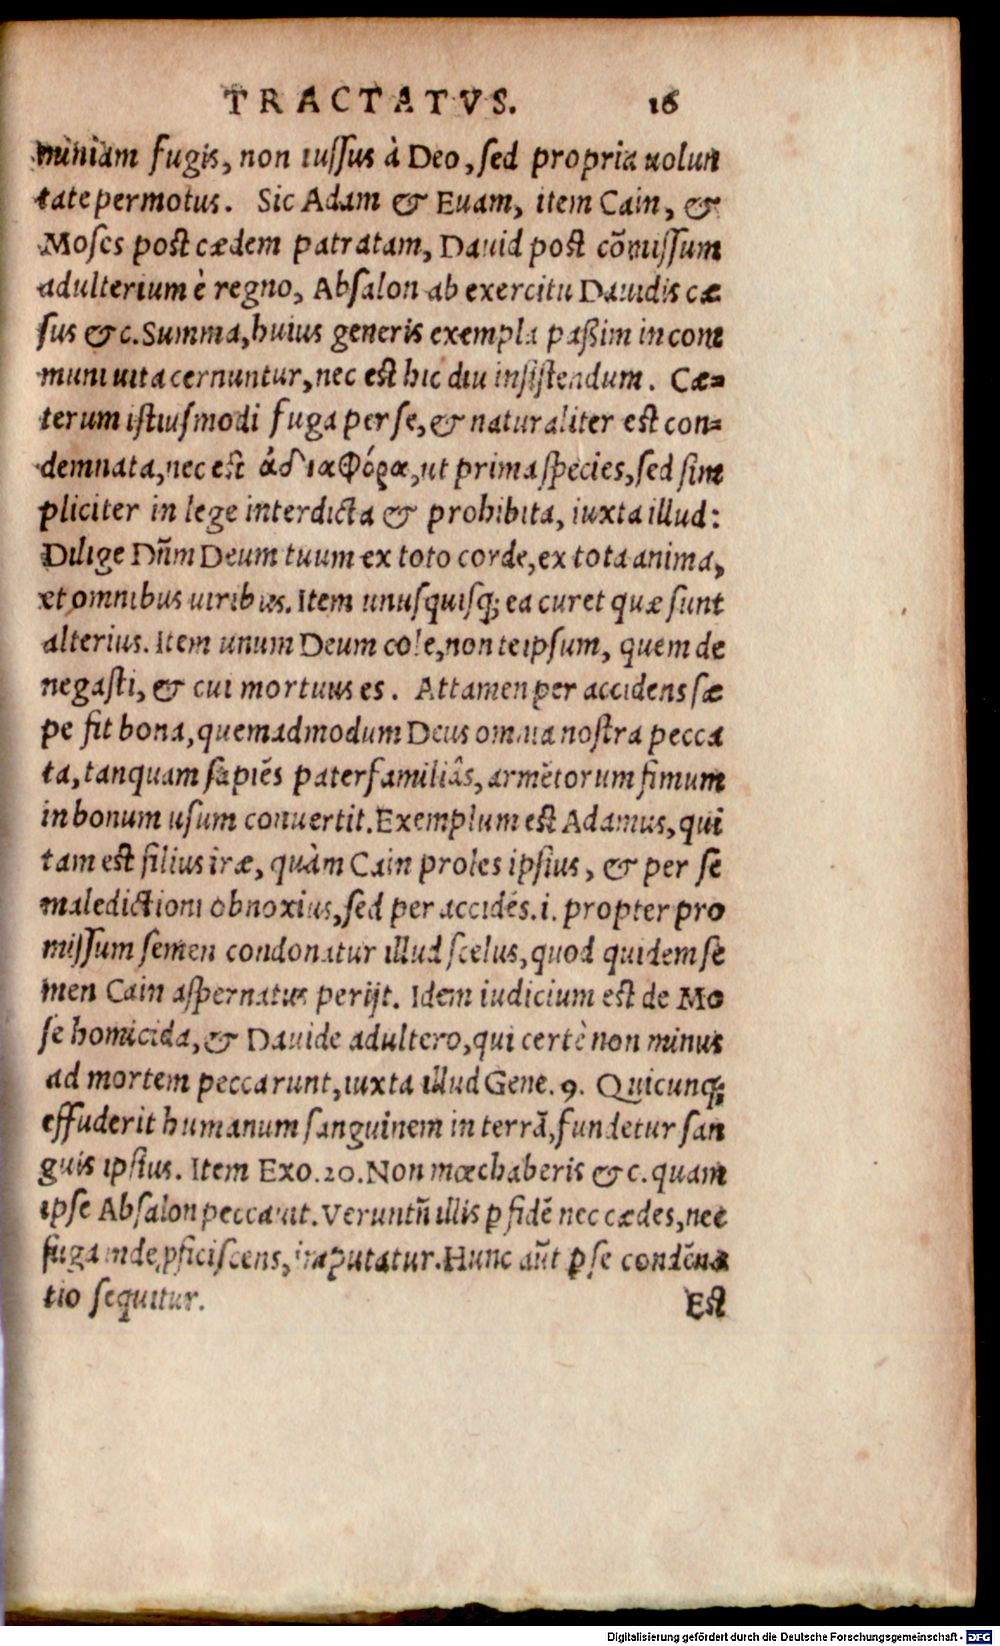 TRACTATVS. 16
miniam fugis, non iussus à Deo, sed propria uolun
tate permotus. Sic Adam & Euam, item Cain, &
Moses post cædem patratam, Dauid post cõmissum
adulterium è regno, Absalon ab exercitu Dauidis cæ
sus &c. Summa, huius generis exempla paßim in com
muni uita cernuntur, nec est hic diu insistendum. Cæ=
terum istiusmodi fuga per se, & naturaliter est con=
demnata, nec est ἀδιαφόρα, ut prima species, sed sim
pliciter in lege interdicta & prohibita, iuxta illud:
Dilige Dñm Deum tuum ex toto corde, ex tota anima,
et omnibus uiribus. Item unusquisq; ea curet quæ sunt
alterius. Item unum Deum cole, non teipsum, quem de
negasti, & cui mortuus es. Attamen per accidens sæ
pe fit bona, quemadmodum Deus omnia nostra pecca
ta, tanquam sapiẽs paterfamiliâs, armẽtorum fimum
in bonum usum conuertit. Exemplum est Adamus, qui
tam est filius iræ, quàm Cain proles ipsius, & per se
maledictioni obnoxius, sed per accidẽs .i. propter pro
missum semen condonatur illud scelus, quod quidem se
men Cain aspernatus perijt. Idem iudicium est de Mo
se homicida, & Dauide adultero, qui certè non minus
ad mortem peccarunt, iuxta illud Gene. 9. Quicunq;
effuderit humanum sanguinem in terrã, fundetur san
guis ipsius. Item Exo. 20. Non mœchaberis &c. quam
ipse Absalon peccauit. Veruntñ illis ꝑ fidẽ nec cædes, nec
fuga inde ꝓficiscens, imputatur. Hunc aũt ꝑ se condẽna
tio sequitur. Est
Digitalisierung gefördert durch die Deutsche Forschungsgemeinschaft - DFG